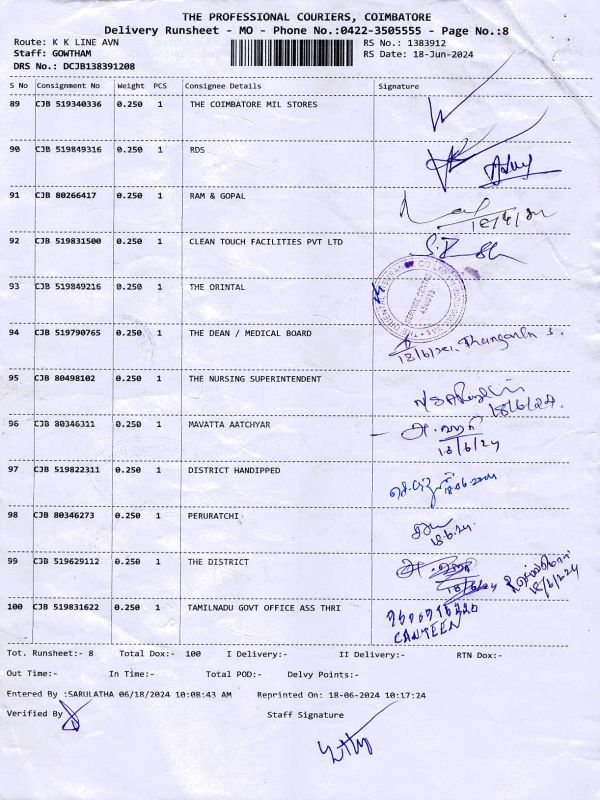 THE PROFESSIONAL COURIERS, COIMBATORE
Delivery Runsheet - MO - Phone No.:0422-3505555 - Page No.:8
Route: K K LINE AVN RS No.: 1383912
Staff: GOWTHAM RS Date: 18-Jun-2024
DRS No.: DCJB138391208
S No Consignment No Weight PCS Consignee Details Signature
89 CJB 519340336 0.250 1 THE COIMBATORE MIL STORES
90 CJB 519849316 0.250 1 RDS
91 CJB 80266417 0.250 1 RAM & GOPAL
92 CJB 519831500 0.250 1 CLEAN TOUCH FACILITIES PVT LTD
93 CJB 519849216 0.250 1 THE ORINTAL
94 CJB 519790765 0.250 1 THE DEAN / MEDICAL BOARD
95 CJB 80498102 0.250 1 THE NURSING SUPERINTENDENT
18/6/24.
96 CJB 80346311 0.250 1 MAVATTA AATCHYAR
18/6/24
97 CJB 519822311 0.250 1 DISTRICT HANDIPPED
98 CJB 80346273 0.250 1 PERURATCHI
18.6.24
99 CJB 519629112 0.250 1 THE DISTRICT
18/6/24 18/6/24
100 CJB 519831622 0.250 1 TAMILNADU GOVT OFFICE ASS THRI
CANTEEN
Tot. Runsheet:- 8 Total Dox:- 100 I Delivery:- II Delivery:- RTN Dox:-
Out Time:- In Time:- Total POD:- Delvy Points:-
Entered By :SARULATHA 06/18/2024 10:08:43 AM Reprinted On: 18-06-2024 10:17:24
Verified By Staff Signature